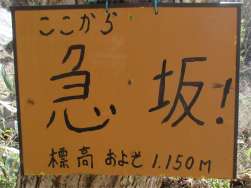 ここから
急坂!
標高 およそ 1.150M